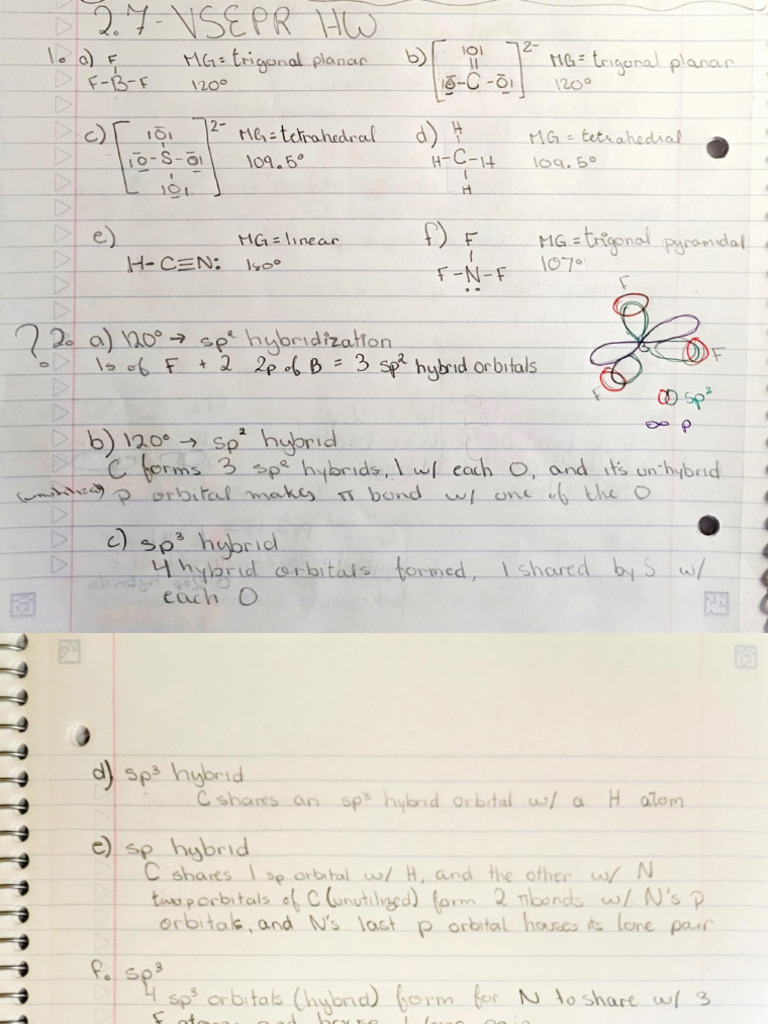 2.7 - VSEPR HW
1. a) F MG = trigonal planar b) |O| 2- MG = trigonal planar
F-B-F 120° |O-C-O| 120°
c) |O| 2- MG = tetrahedral d) H MG = tetrahedral
|O-S-O| 109.5° H-C-H 109.5°
|O| H
e) MG = linear f) F MG = trigonal pyramidal
H-C≡N: 180° F-N-F 107°
? 2. a) 120° → sp² hybridization F
1s of F + 2 2p of B = 3 sp² hybrid orbitals B F
F sp²
p
b) 120° → sp² hybrid
C forms 3 sp² hybrids, 1 w/ each O, and it's unhybrid
(unutilized) p orbital makes π bond w/ one of the O
c) sp³ hybrid
4 hybrid orbitals formed, 1 shared by S w/
each O
d) sp³ hybrid
C shares an sp³ hybrid orbital w/ a H atom
e) sp hybrid
C shares 1 sp orbital w/ H, and the other w/ N
two p orbitals of C (unutilized) form 2 π bonds w/ N's p
orbitals, and N's last p orbital houses its lone pair
f. sp³
4 sp³ orbitals (hybrid) form for N to share w/ 3
F atoms and house 1 lone pair